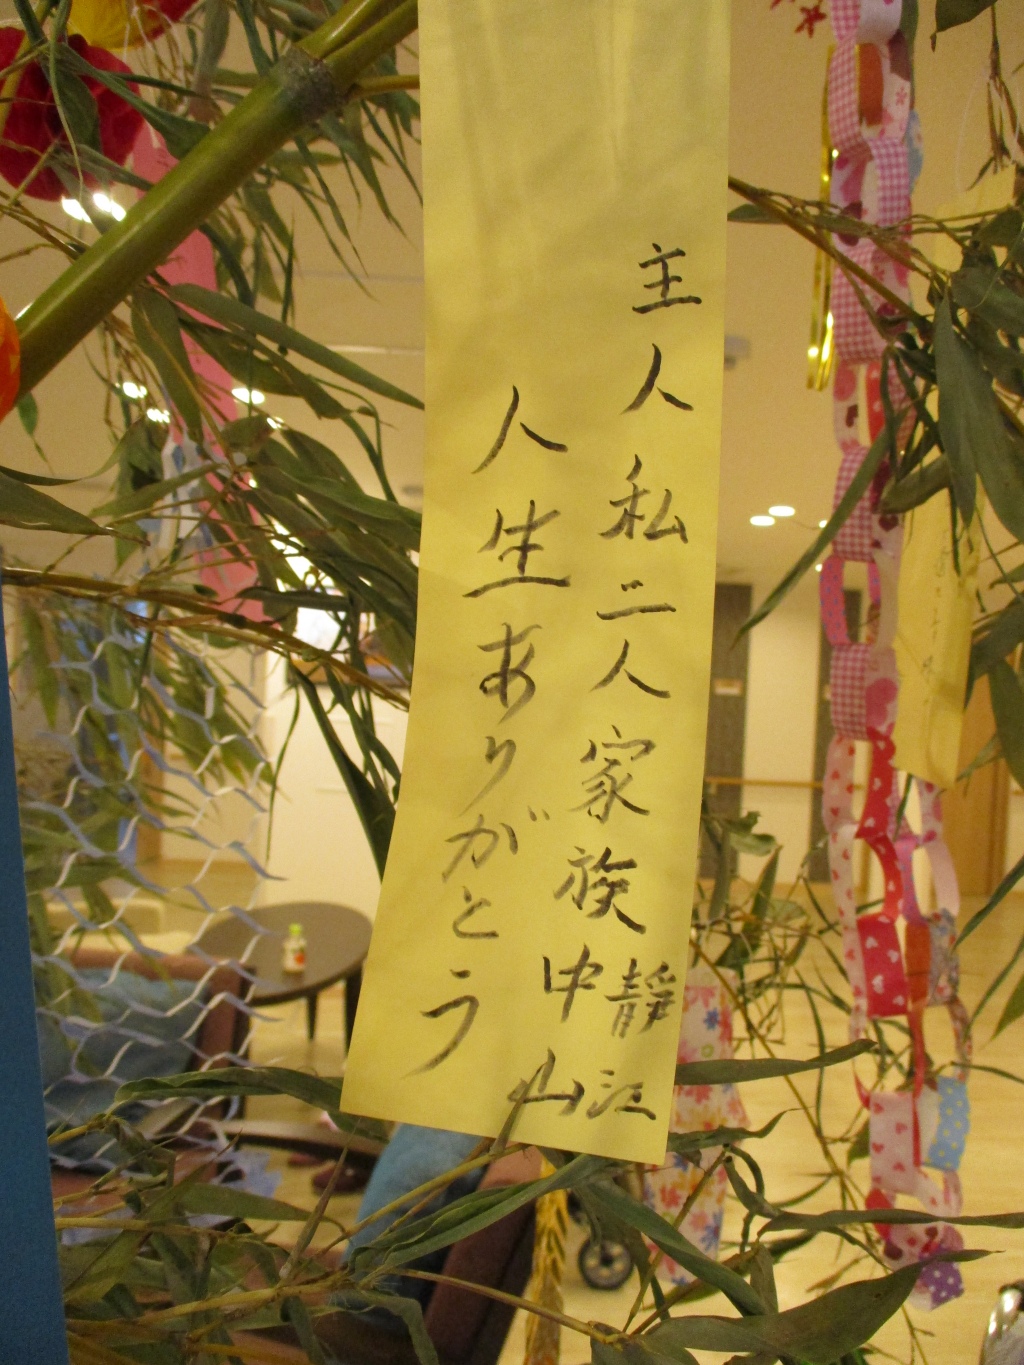 主人私二人家族
人生ありがとう
中山
靜江